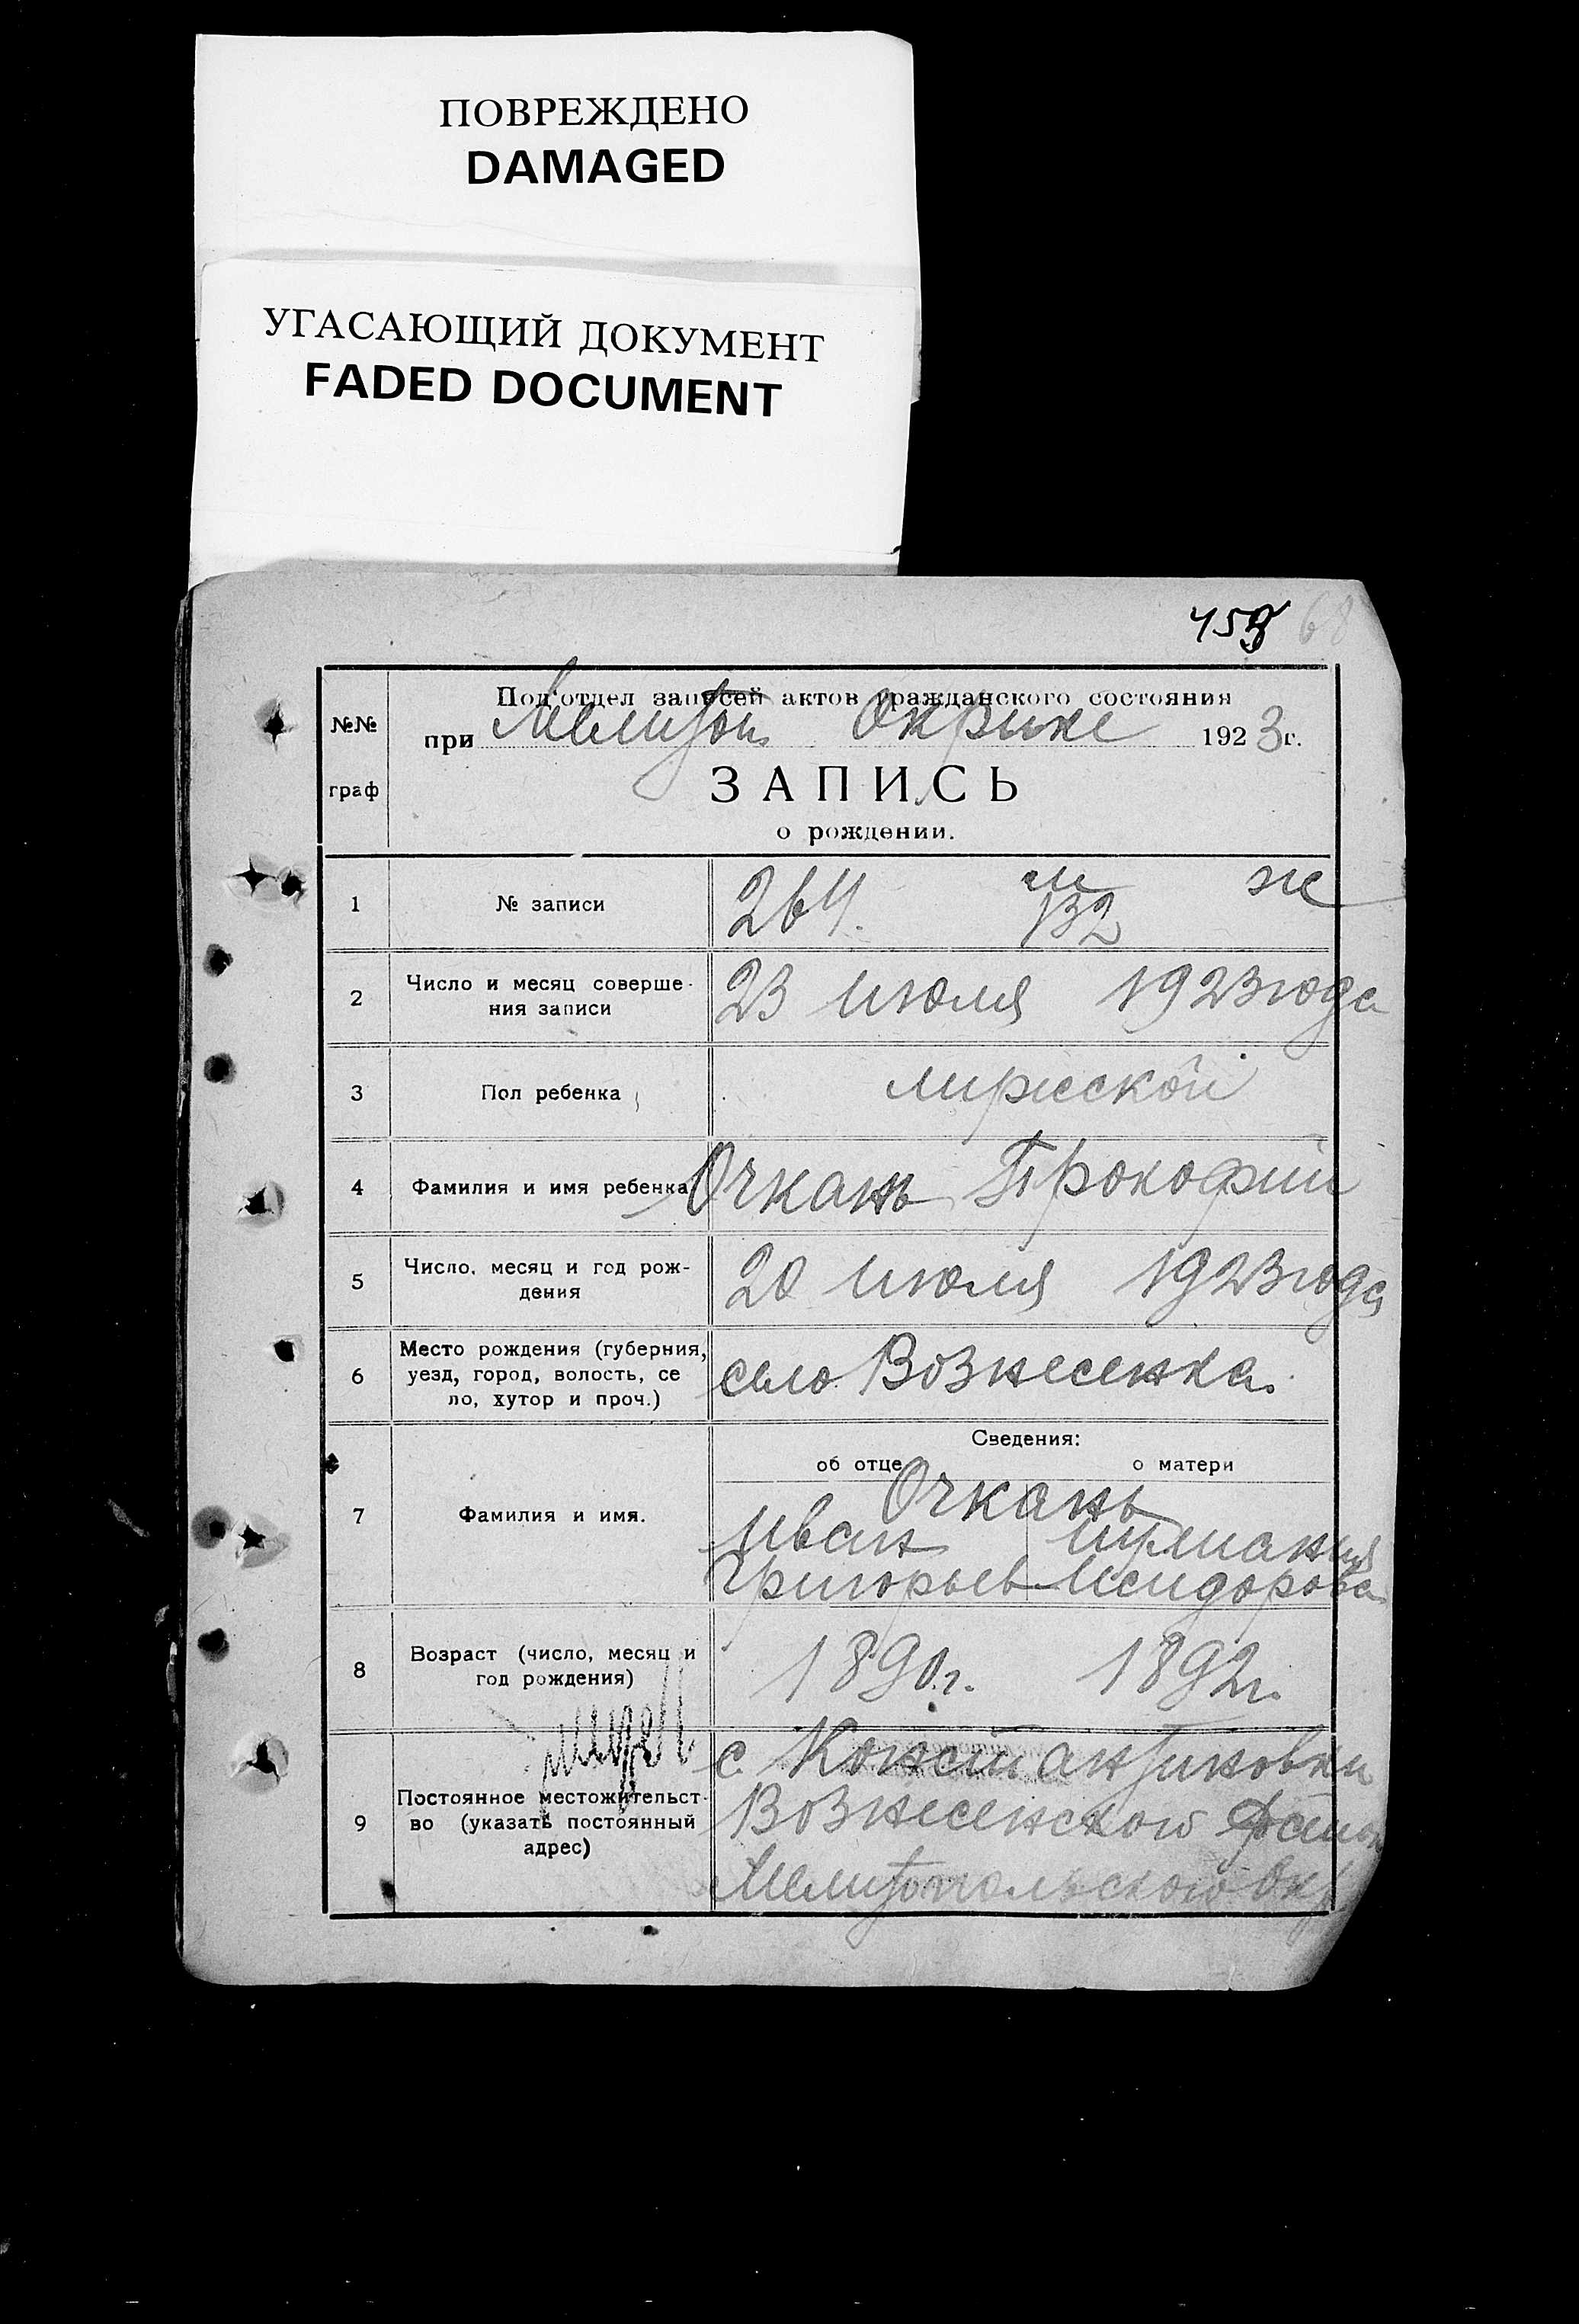 ПОВРЕЖДЕНО
DAMAGED
УГАСАЮЩИЙ ДОКУМЕНТ
FADED DOCUMENT
68
Под'отдел записей актов гражданского состояния
№№
при Мелитоп Окрике 1923 г.
граф
ЗАПИСЬ
о рождении.
1 № записи 264. м ж
132
2 Число и месяц соверше-
ния записи 23 июля 1923 года
3 Пол ребенка
4 Фамилия и имя ребенка Очкань Прокофий
5 Число, месяц и год рож-
дения 20 июля 1923 года
6 Место рождения (губерния,
уезд, город, волость, се
ло, хутор и проч.) село Вознесенка
Сведения:
об отце о матери
7 Фамилия и имя. Очкань
Иван
Григорьев Исидорова
8 Возраст (число, месяц и
год рождения) 1890 г. 1892 г.
9 Постоянное местожительст-
во (указать постоянный
адрес) с. Константиновки
Вознесенской
Мелитопольского Окр